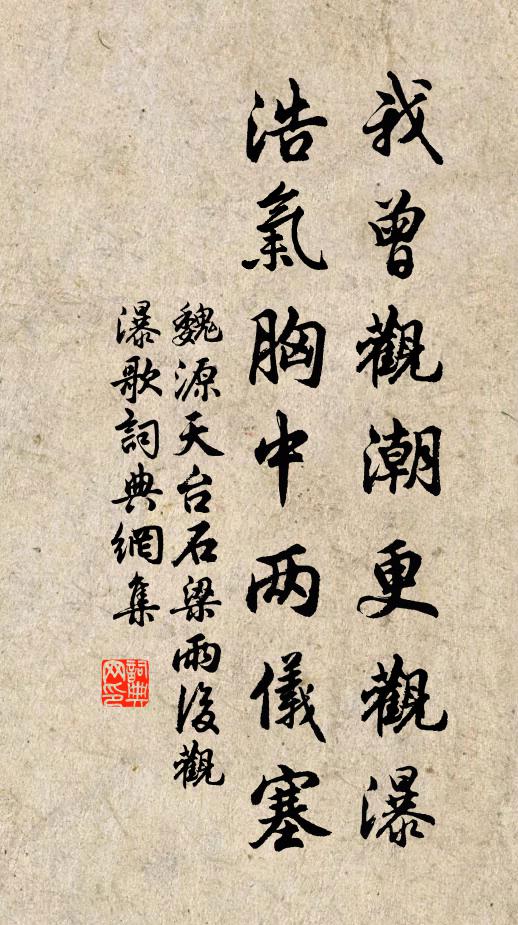 我曾觀潮更觀瀑
浩氣胸中两儀塞
魏源天台石梁雨後觀
瀑歌詞典網集
詞典
网印